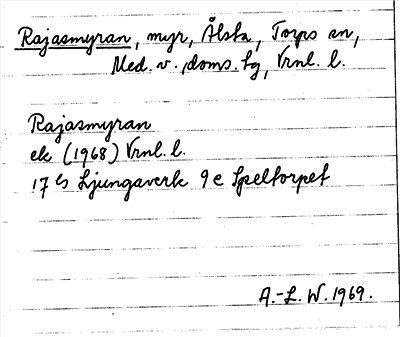 Rajasmyran, myr, Ålsta, Torps sn,
Med. v. doms. tg, Vrnl. l.
Rajasmyran
ek (1968) Vrnl. l.
17 Es Ljungaverk 9 e Speltorpet
A.-L. W. 1969.